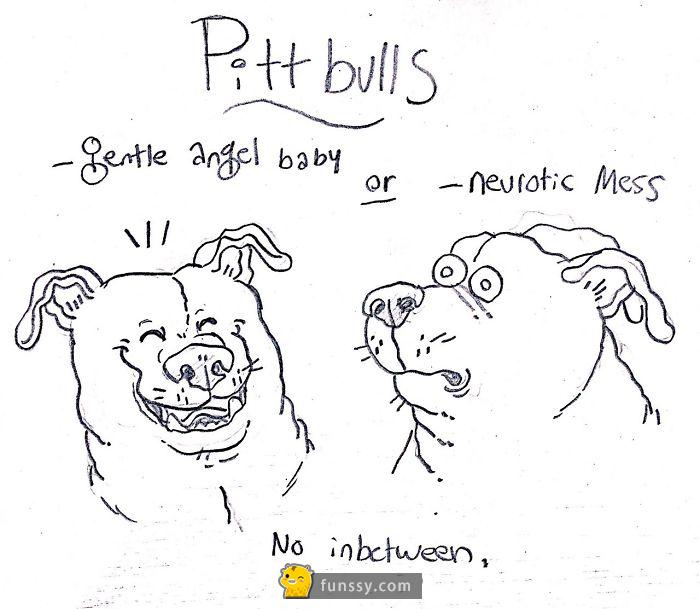 Pittbulls
- gentle angel baby
or
- neurotic Mess
No inbetween.
funssy.com